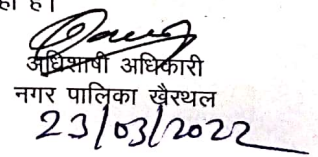 हा है।
अधिशाषी अधिकारी
नगर पालिका खैरथल
23/03/2022